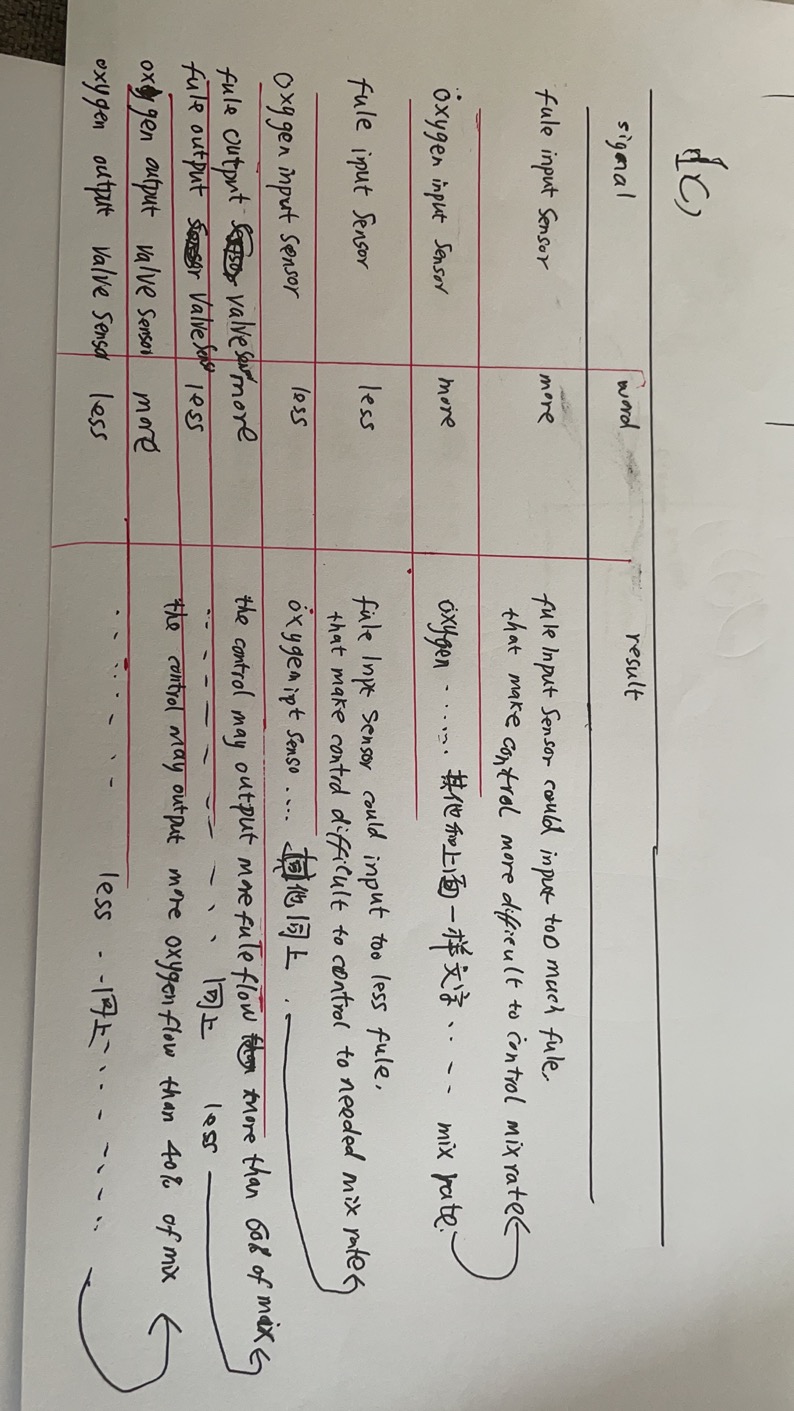 1C)
signal word result
fule input sensor more fule input sensor could input too much fule.
that make control more difficult to control mix rate
oxygen input sensor more oxygen - ..... 其他和上面一样文字 . . - - mix rate.
fule iput sensor less fule Inpt sensor could input too less fule,
that make control difficult to control to needed mix rate
oxygen input sensor less oxygen ipt senso .... 其他同上 .
fule output valve more the control may output more fule flow more than 60% of mix
fule output valve less - - - - - 同上 less
oxygen output valve sensor more the control may output more oxygen flow than 40% of mix
oxygen output valve senso less . . . . - - - less - - 同上 . . - - - . .